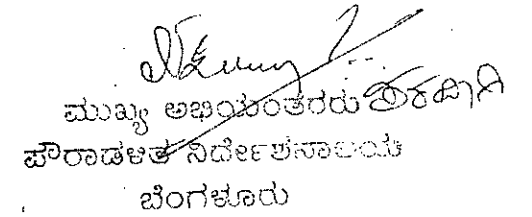 ಮುಖ್ಯ ಅಭಿಯಂತರರು ಪರವಾಗಿ
ಪೌರಾಡಳಿತ ನಿರ್ದೇಶನಾಲಯ
ಬೆಂಗಳೂರು